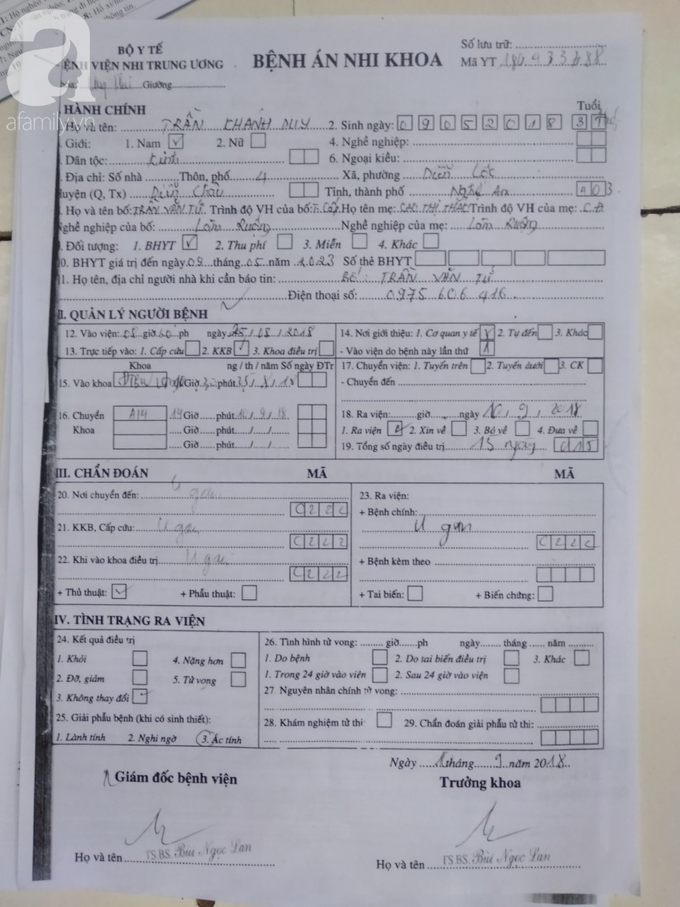 a
afamily.vn
BỘ Y TẾ
BỆNH VIỆN NHI TRUNG ƯƠNG
BỆNH ÁN NHI KHOA
Số lưu trữ:
Mã YT 180933688
Giường
HÀNH CHÍNH
Tuổi
Họ và tên: TRẦN KHÁNH DUY 2. Sinh ngày: 09052018 3T
Giới: 1. Nam 2. Nữ 4. Nghề nghiệp:
Dân tộc: Kinh 6. Ngoại kiều:
Địa chỉ: Số nhà Thôn, phố 4 Xã, phường Diễn Lộc
Huyện (Q, Tx) Diễn Châu Tỉnh, thành phố Nghệ An 403
Họ và tên bố: TRẦN VĂN TƯ Trình độ VH của bố: Họ tên mẹ: CAO THỊ Trình độ VH của mẹ: CĐ
Nghề nghiệp của bố: Làm Ruộng Nghề nghiệp của mẹ: Làm Ruộng
Đối tượng: 1. BHYT 2. Thu phí 3. Miễn 4. Khác
10. BHYT giá trị đến ngày 09 tháng 05 năm 2023 Số thẻ BHYT
11. Họ tên, địa chỉ người nhà khi cần báo tin: Bố: TRẦN VĂN TƯ
Điện thoại số: 0975 606 416
II. QUẢN LÝ NGƯỜI BỆNH
12. Vào viện: 08 giờ ph ngày 25/08/2018
13. Trực tiếp vào: 1. Cấp cứu 2. KKB 3. Khoa điều trị
14. Nơi giới thiệu: 1. Cơ quan y tế 2. Tự đến 3. Khác
- Vào viện do bệnh này lần thứ 1
Khoa ng / th / năm Số ngày ĐTr
15. Vào khoa Giờ phút 25/8/18
16. Chuyển Khoa A14 14 Giờ phút 10/9/18
Giờ phút / /
Giờ phút / /
17. Chuyển viện: 1. Tuyến trên 2. Tuyến dưới 3. CK
- Chuyển đến
18. Ra viện: giờ ngày 10/9/2018
1. Ra viện 2. Xin về 3. Bỏ về 4. Đưa về
19. Tổng số ngày điều trị 15 ngày 015
III. CHẨN ĐOÁN MÃ MÃ
20. Nơi chuyển đến: U gan
C222
21. KKB, Cấp cứu: U gan
C222
22. Khi vào khoa điều trị U gan
C222
+ Thủ thuật: + Phẫu thuật:
23. Ra viện:
+ Bệnh chính:
U gan
C222
+ Bệnh kèm theo
+ Tai biến: + Biến chứng:
IV. TÌNH TRẠNG RA VIỆN
24. Kết quả điều trị
1. Khỏi 4. Nặng hơn
2. Đỡ, giảm 5. Tử vong
3. Không thay đổi
25. Giải phẫu bệnh (khi có sinh thiết):
1. Lành tính 2. Nghi ngờ 3. Ác tính
26. Tình hình tử vong: giờ ph ngày tháng năm
1. Do bệnh 2. Do tai biến điều trị 3. Khác
1. Trong 24 giờ vào viện 2. Sau 24 giờ vào viện
27. Nguyên nhân chính tử vong:
28. Khám nghiệm tử thi 29. Chẩn đoán giải phẫu tử thi:
Ngày tháng 9 năm 2018
Giám đốc bệnh viện
Trưởng khoa
Họ và tên TS.BS. Bùi Ngọc Lan
Họ và tên TS.BS. Bùi Ngọc Lan